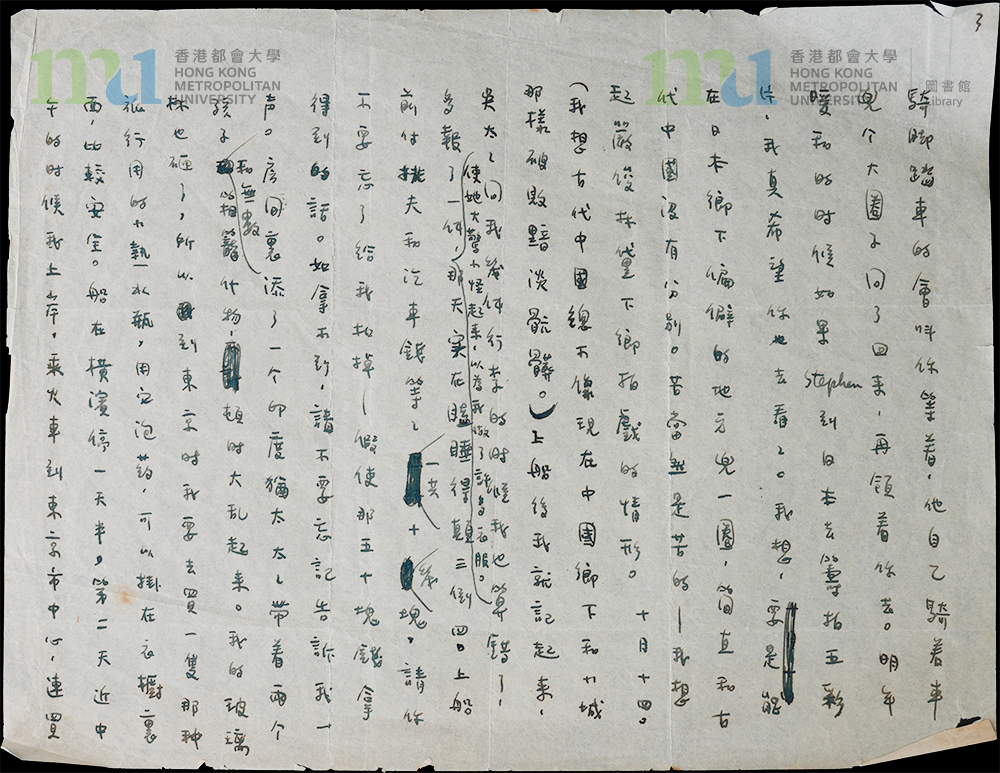 3
香港都會大學
HONG KONG
METROPOLITAN
UNIVERSITY
香港都會大學
HONG KONG
METROPOLITAN
UNIVERSITY
圖書館
Library
騎脚踏車的會叫你等着，他自己騎着車
兜个大圈子回了四来，再領着你去。明年
暖和的时候如果Stephen到日本去籌拍五彩
片，我真希望你也去看看。我想，要是能
在日本鄉下偏僻的地方兜一圈，簡直和古
代中國没有分别。苦當然是苦的—我想
起嚴俊林黛下鄉拍戲的情形。 十月十四。
(我想古代中國總不像現在中國鄉下和小城
那樣破敗黯淡骯髒。)上船後我就記起来，
吳太太问我幾件行李的时候我也算錯了，
多報了一件，使她大驚小怪起来，以為我做了許多衣服。那天实在瞌睡得顛三倒四。上船
前付挑夫和汽車錢等等一共十幾塊，請你
不要忘了給我扣掉—假使那五十塊錢拿
得到的話。如拿不到，請不要忘記告訴我一
声。房间裏添了一个印度猶太太太帶着兩个
孩子和無數箱籠什物，頓时大乱起来。我的玻璃
杯也砸了，所以到東京时我要去買一隻那种
旅行用的小熱水瓶，用它泡药，可以掛在衣櫥裏
面，比較安全。船在橫濱停一天半，第二天近中
午的时候我上岸，乘火車到東京市中心，連買